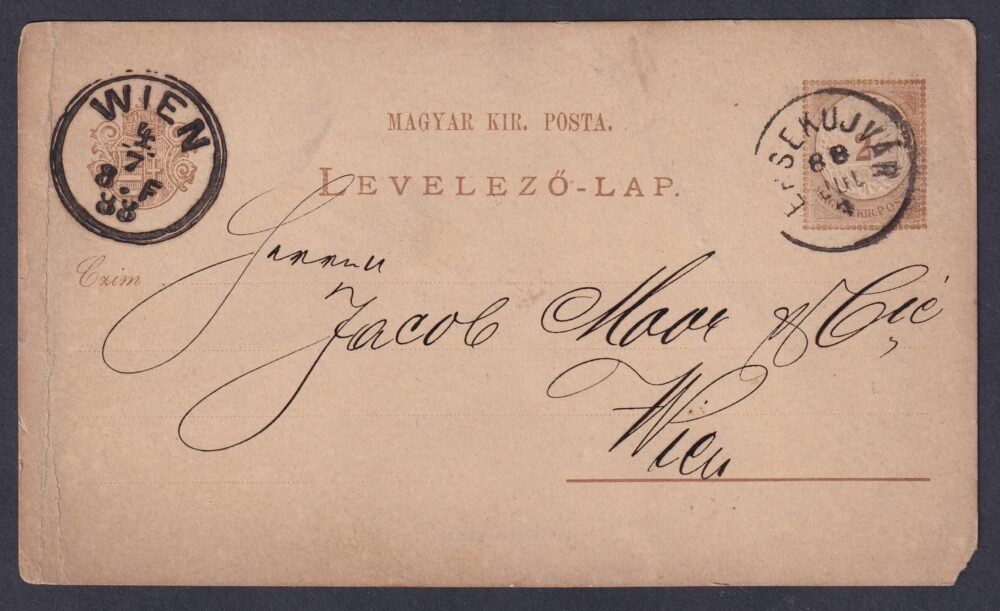 WIEN
4
7
8.F
88
MAGYAR KIR. POSTA.
LEVELEZŐ-LAP.
ÉRSEKUJVÁR
88
JUL
2
KIR. POS
Czim
Herrn
Jacob Moor & Cie
Wien